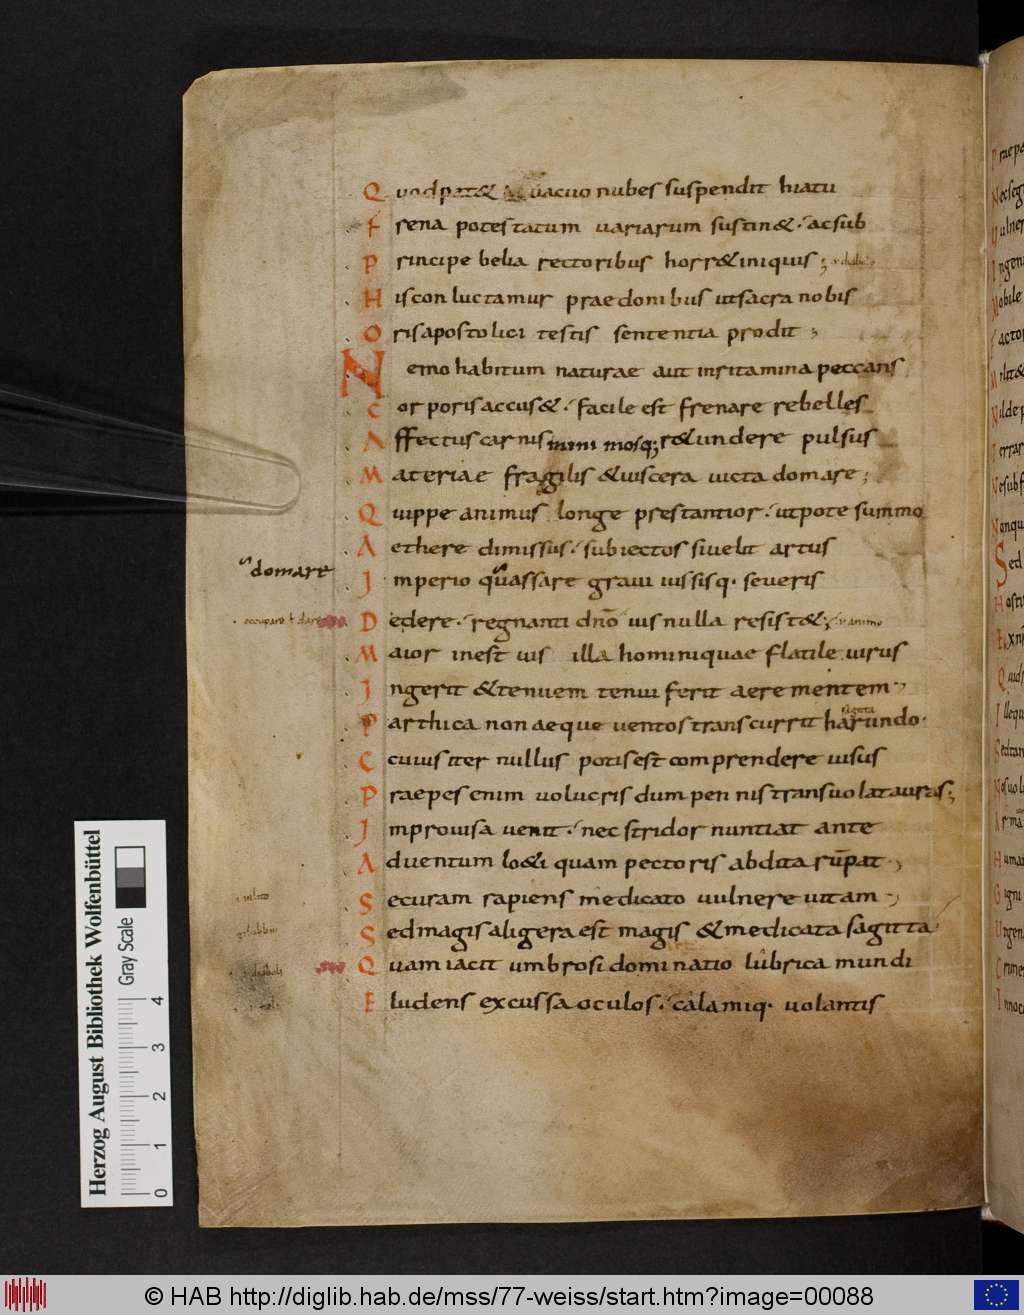 Quod patet & vacuo nubes suspendit hiatu
Frena potestatum uariarum sustin&. ac sub
Principe bella rectoribus horr& iniquis;
His conluctamur praedonibus ut sacra nobis
Oris apostolici testis sententia prodit;
Nemo habitum naturae aut insitamina peccans
Corporis accus&. facile est frenare rebelles
Affectus carnis nimimosq; r&undere pulsus
Materiae fragilis & uiscera uicta domare;
Quippe animus longe prestantior. utpote summo
Aethere dimissus. subiectos si uelit artus
s domare
Imperio quassare graui iussisq. seueris
occupare ł dare
Dedere. regnanti dno uis nulla resist&; s animo
Maior inest uis illa hominiquae flatile uirus
Ingerit & tenuem tenui ferit aere mentem
sagitta
Parthica non aeque uentos transcurrit harundo.
Cuius iter nullus potis est comprendere uisus
Praepes enim uolucris dum pennis transuolat auras;
Improuisa uenit. nec stridor nuntiat ante
Aduentum lo&i quam pectoris abdita rūpat
Securam sapiens medicato uulnere uitam
Sed magis aligera est magis & medicata sagitta
Quam iacit umbrosi dominatio lubrica mundi
Eludens excussa oculos. calamiq. uolantis
Praepe
Nec seg
Uulner
Ingeni
Nobile
Factor
Nil de p
Terrar
Ne sub f
Nonqu
Sed
Hostu
Exn
Quid
Illequ
Sed tan
Nos uol
Huma
Gigni
Urgen
Crime
Innoc
Herzog August Bibliothek Wolfenbüttel
Gray Scale
0 1 2 3 4
© HAB http://diglib.hab.de/mss/77-weiss/start.htm?image=00088